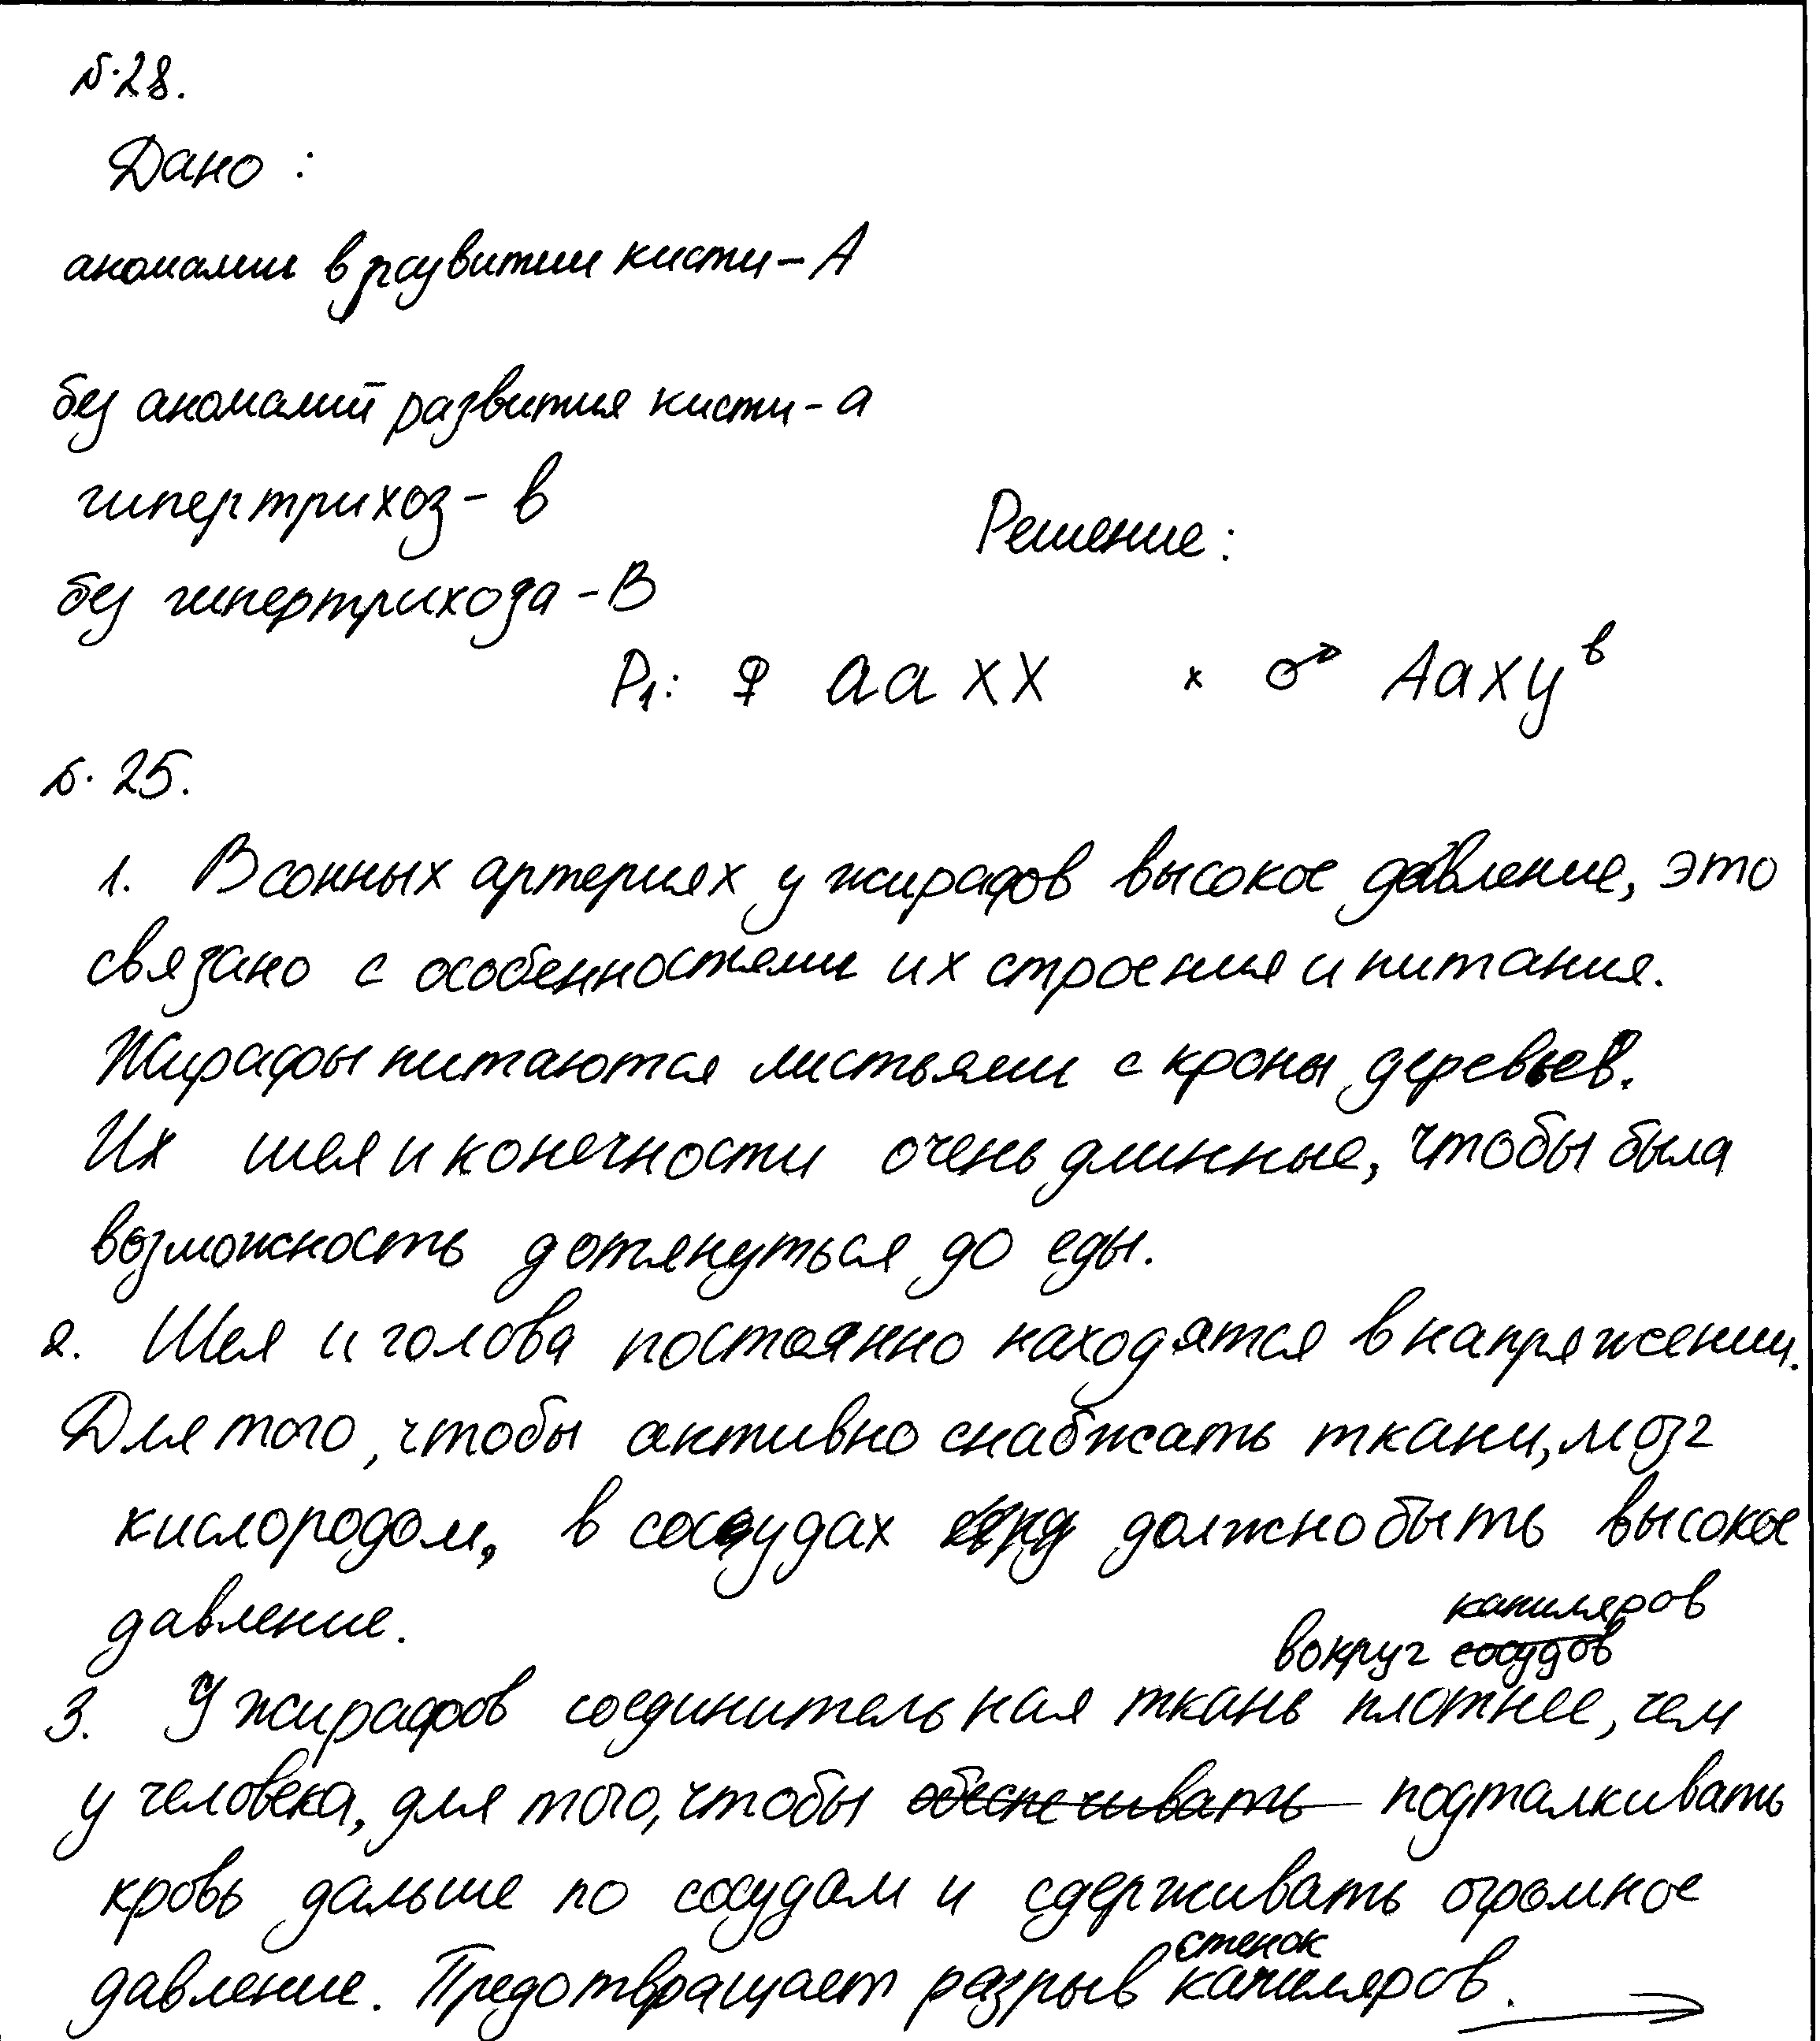 №28.
Дано:
аномалии в развитии кисти - А
без аномалий развития кисти - а
гипертрихоз - в
без гипертрихоза - В
Решение:
P₁: ♀ аа ХХ × ♂ АаХУᵇ
№ 25.
1. В сонных артериях у жирафов высокое давление, это
связано с особенностями их строения и питания.
Жирафы питаются листьями с кроны деревьев.
Их шея и конечности очень длинные, чтобы была
возможность дотянуться до еды.
2. Шея и голова постоянно находятся в напряжении.
Для того, чтобы активно снабжать ткани, мозг
кислородом, в сосудах должно быть высокое
давление.
капиляров
вокруг сосудов
3. У жирафов соединительная ткань плотнее, чем
у человека, для того, чтобы обеспечивать подталкивать
кровь дальше по сосудам и сдерживать огромное
стенок
давление. Предотвращает разрыв капиляров.